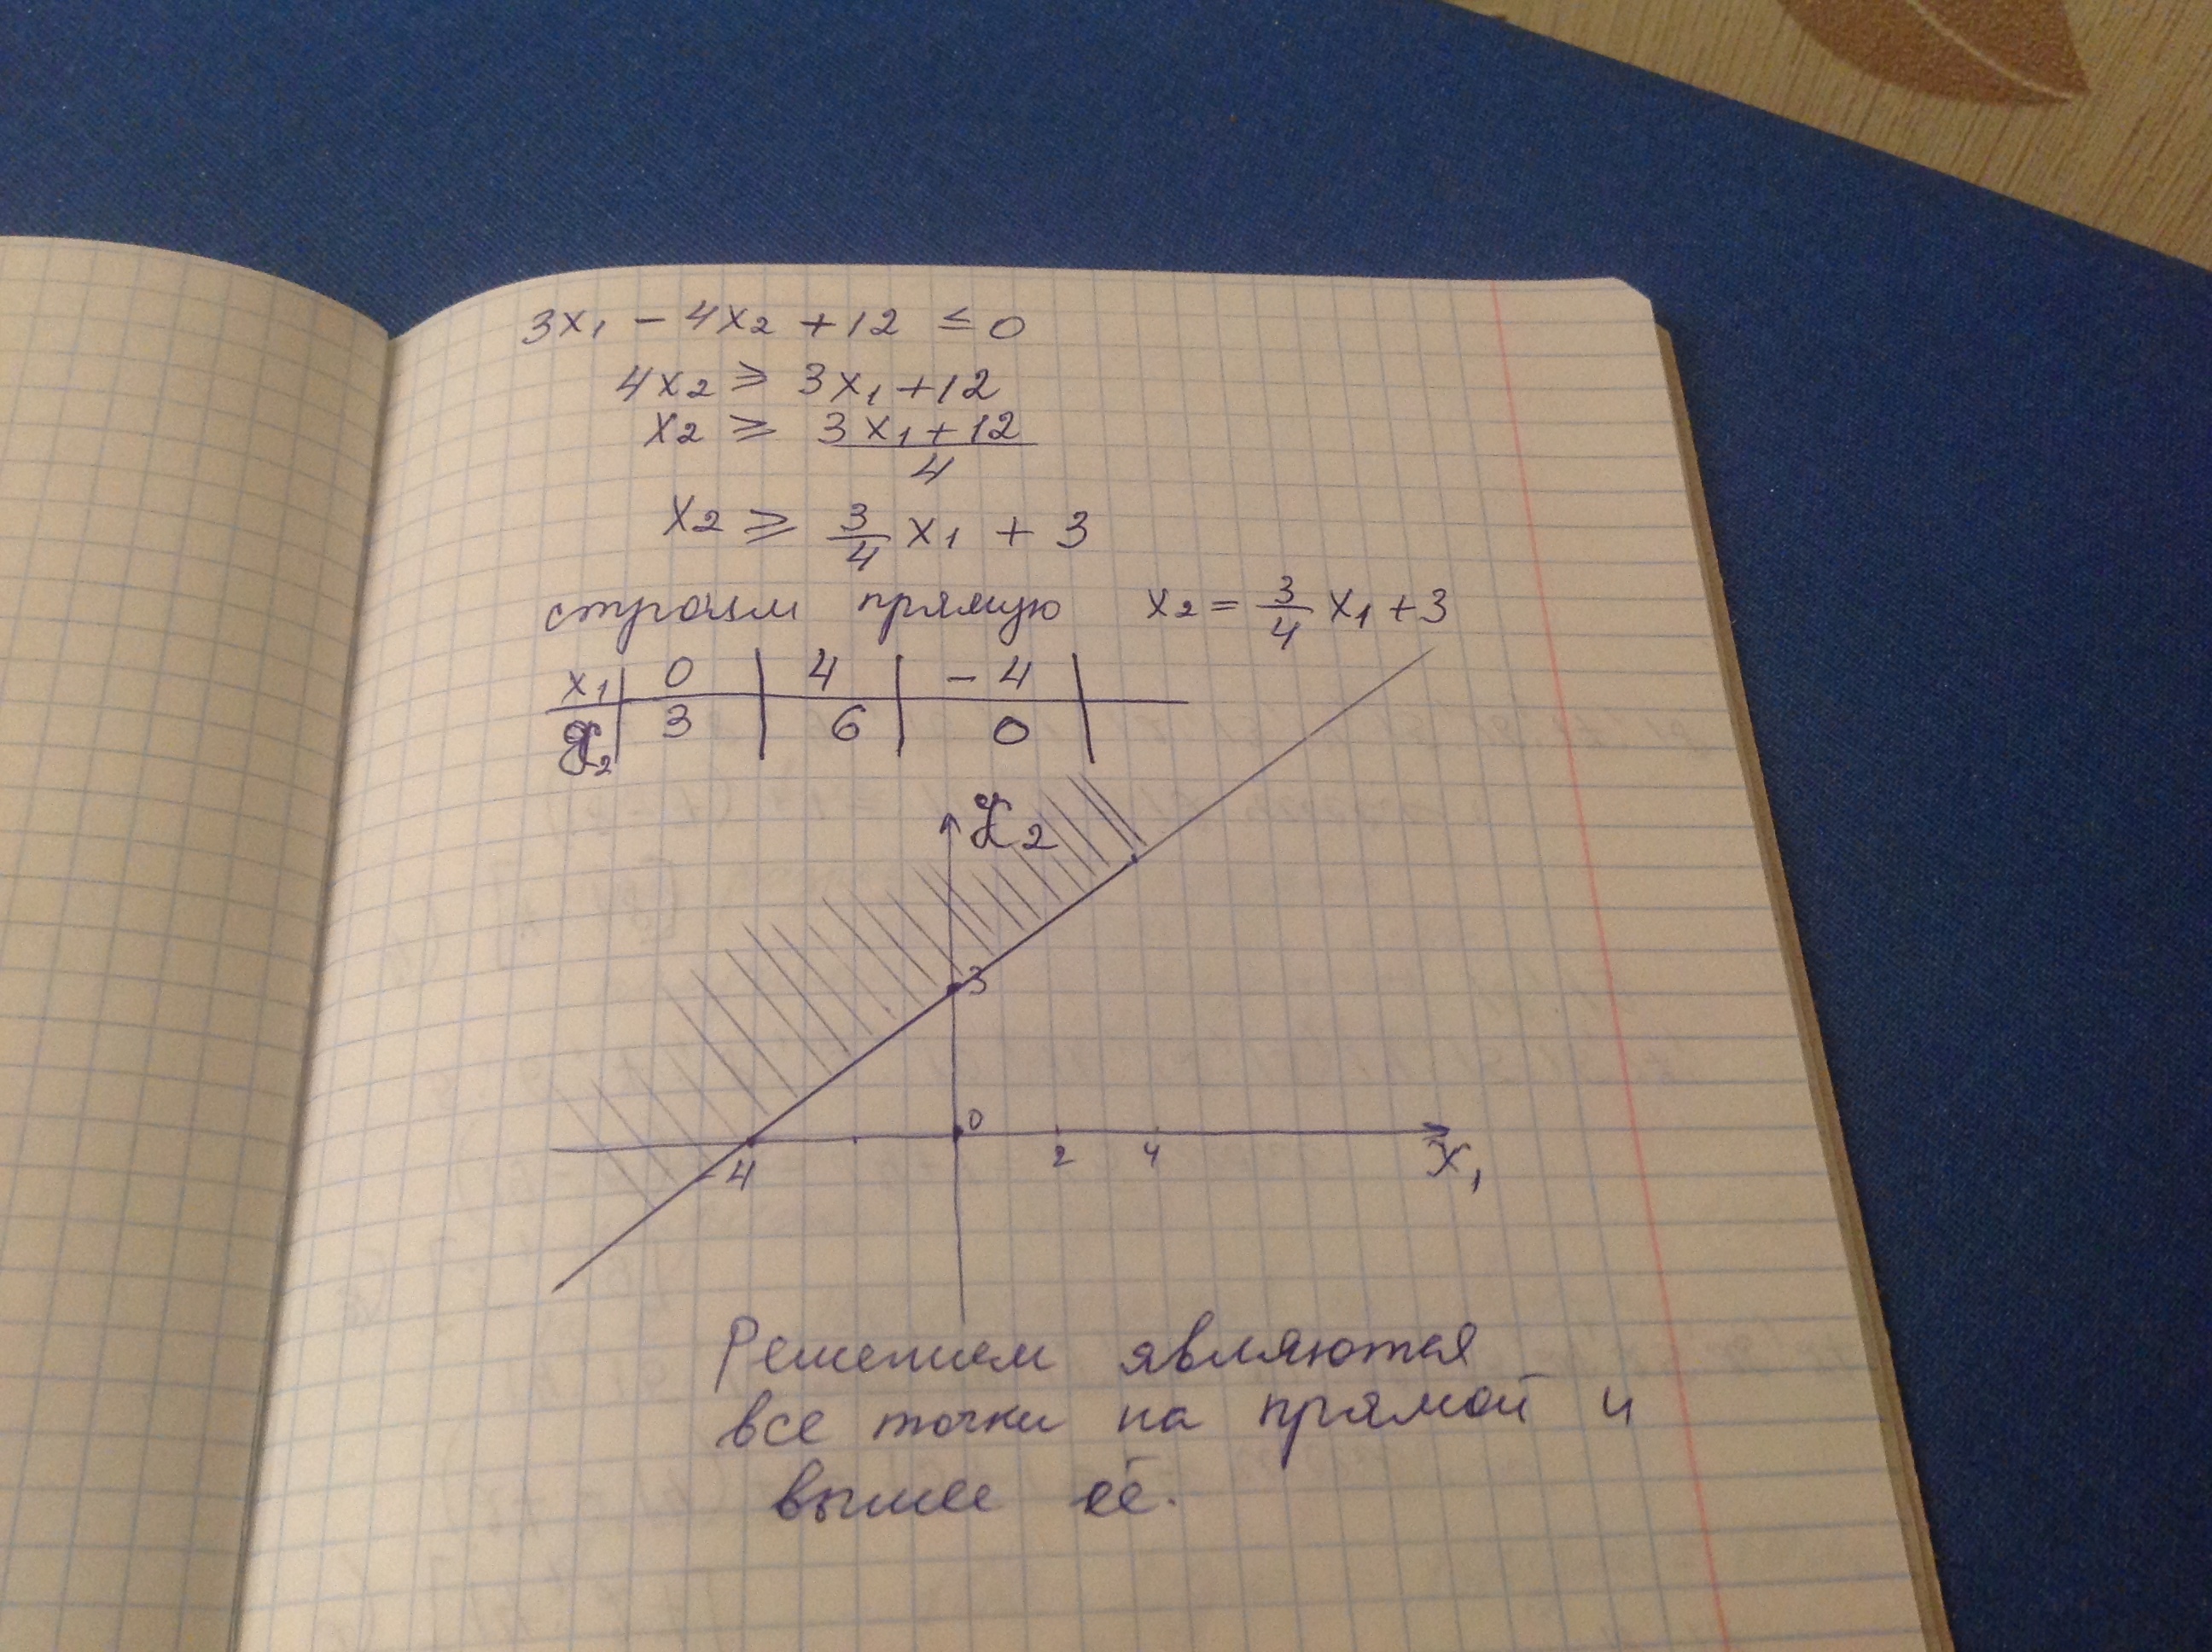 3x₁ - 4x₂ + 12 ≤ 0
4x₂ ≥ 3x₁ + 12
x₂ ≥ (3x₁ + 12)/4
x₂ ≥ 3/4 x₁ + 3
строим прямую x₂ = 3/4 x₁ + 3
x₁ | 0 | 4 | -4 |
x₂ | 3 | 6 | 0 |
x₂
3
0
-4 2 4 x₁
Решением являются
все точки на прямой и
выше её.